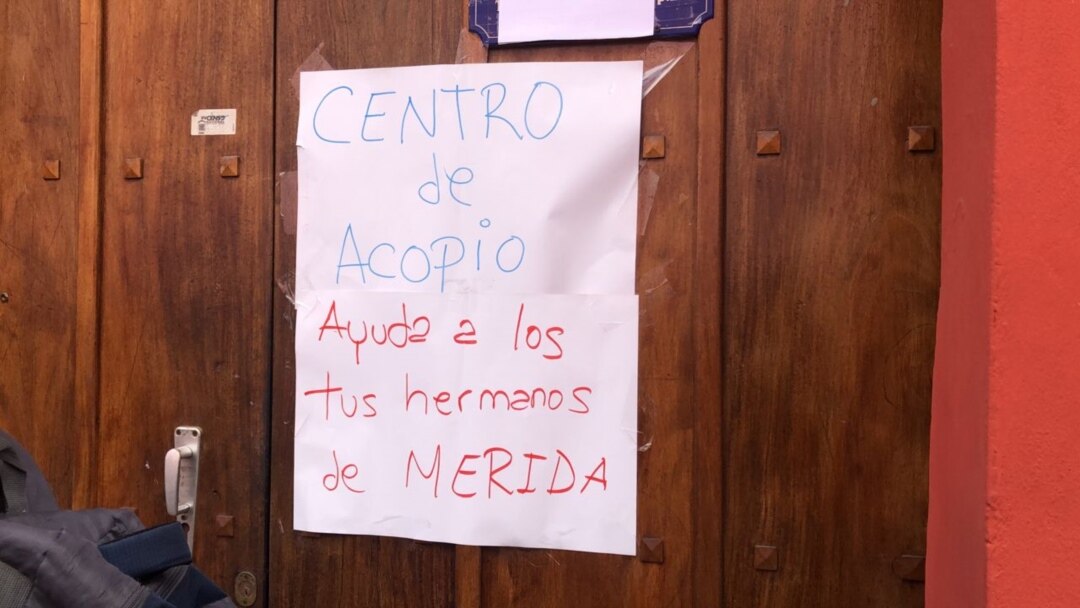 CENTRO
de
ACOPIO
Ayuda a los
tus hermanos
de MERIDA